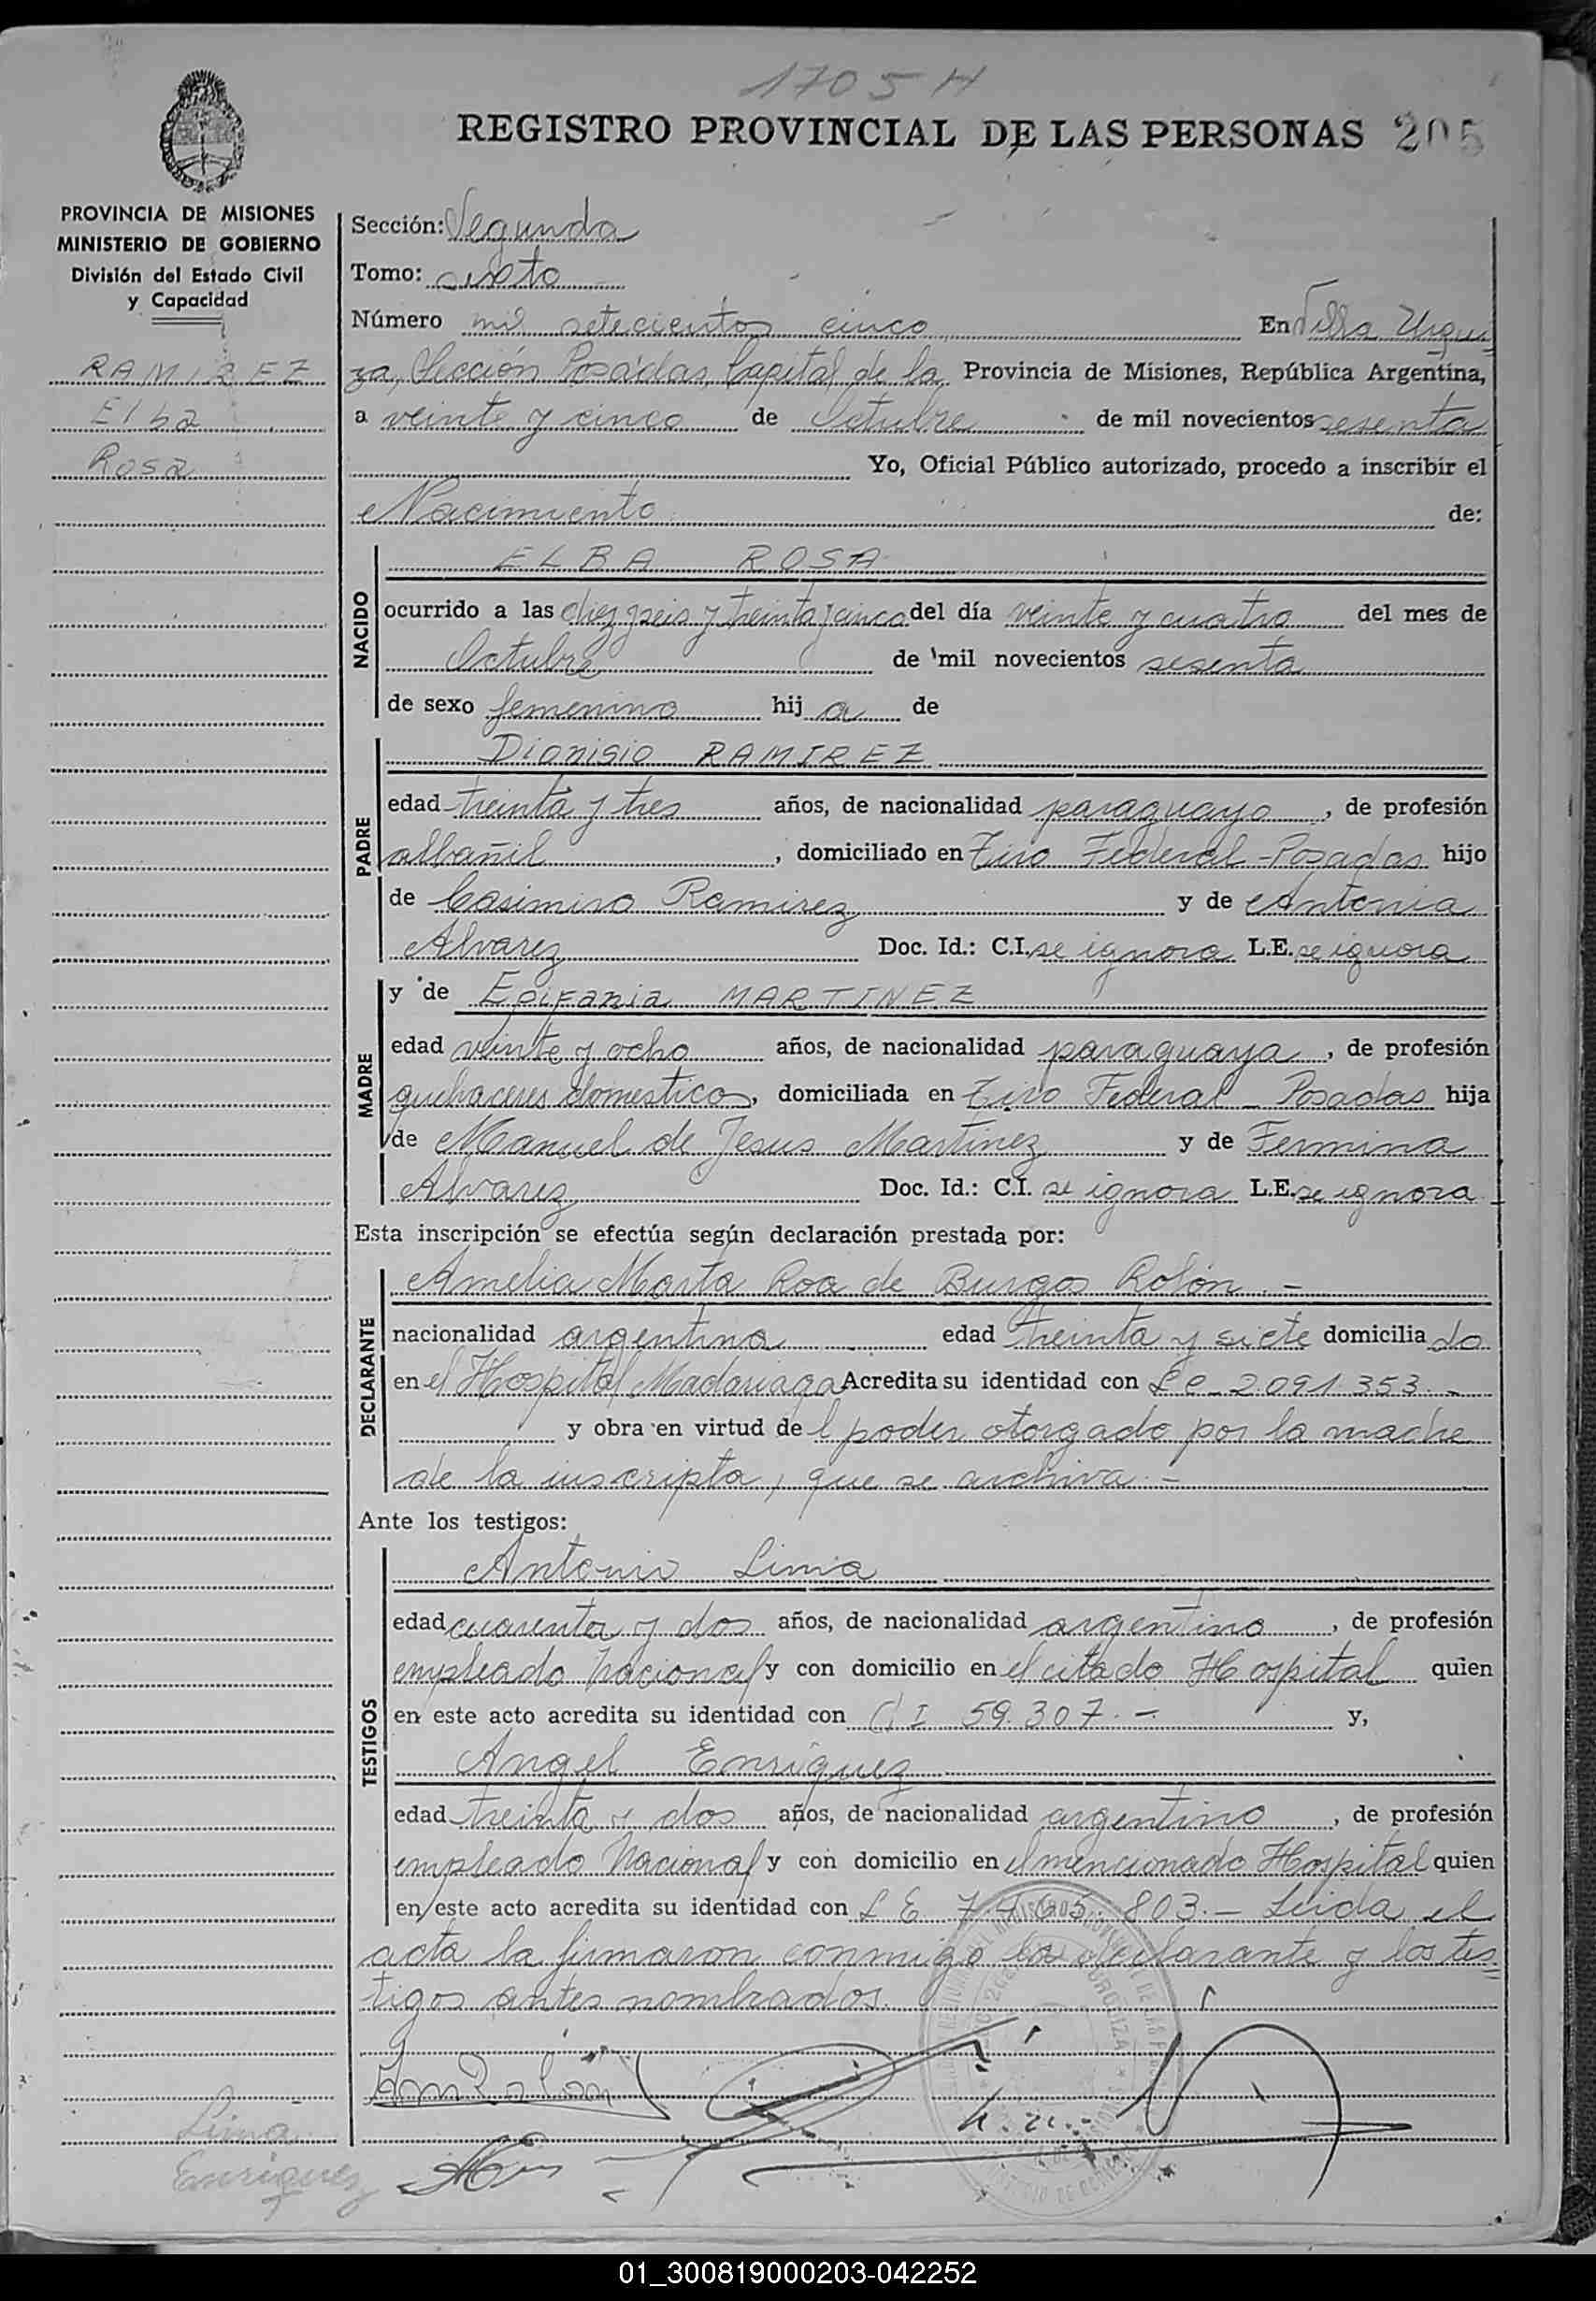 1705 H
REGISTRO PROVINCIAL DE LAS PERSONAS 205
PROVINCIA DE MISIONES
MINISTERIO DE GOBIERNO
División del Estado Civil
y Capacidad
RAMIREZ
Elba
Rosa
Sección: Segunda
Tomo: sexto
Número mil setecientos cinco En Villa Urqui
za, Sección Posadas, Capital de la Provincia de Misiones, República Argentina,
a veinte y cinco de Octubre de mil novecientos sesenta
Yo, Oficial Público autorizado, procedo a inscribir el
Nacimiento de:
NACIDO
ELBA ROSA
ocurrido a las diez y seis y treinta y cinco del día veinte y cuatro del mes de
Octubre de mil novecientos sesenta
de sexo femenino hij a de
PADRE
Dionisio RAMIREZ
edad treinta y tres años, de nacionalidad paraguayo, de profesión
albañil, domiciliado en Tiro Federal - Posadas hijo
de Casimiro Ramirez y de Antonia
Alvarez Doc. Id.: C.I. se ignora L.E. se ignora
MADRE
y de Epifania MARTINEZ
edad veinte y ocho años, de nacionalidad paraguaya, de profesión
quehaceres domesticos, domiciliada en Tiro Federal - Posadas hija
de Manuel de Jesus Martinez y de Fermina
Alvarez Doc. Id.: C.I. se ignora L.E. se ignora
Esta inscripción se efectúa según declaración prestada por:
DECLARANTE
Amelia Marta Roa de Burgos Rolón. -
nacionalidad argentina edad treinta y siete domicilia do
en el Hospital Madariaga Acredita su identidad con L C 2.091.353. -
y obra en virtud de l poder otorgado por la madre
de la inscripta, que se archiva. -
Ante los testigos:
TESTIGOS
Antonio Lima
edad cuarenta y dos años, de nacionalidad argentino, de profesión
empleado Nacional y con domicilio en el citado Hospital quien
en este acto acredita su identidad con C I 59.307. - y,
Angel Enriquez
edad treinta y dos años, de nacionalidad argentino, de profesión
empleado Nacional y con domicilio en el mencionado Hospital quien
en este acto acredita su identidad con L E 7.465.803. - Leida el
acta la firmaron conmigo la declarante y los tes
tigos antes nombrados.
Lima
Enriquez
01_300819000203-042252